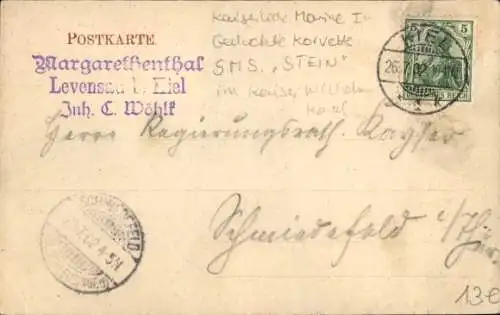 POSTKARTE
Kaiserliche Marine
Gedeckte Korvette
SMS. „STEIN"
im Kaiser Wilhelm
Kanal
5
KIEL
Margarethenthal
Levensau b. Kiel
Inh. C. Wöhlk
Herrn Regierungsrath Kayser
Schmiedefeld i/Thür.
SCHMIEDEFELD
13€